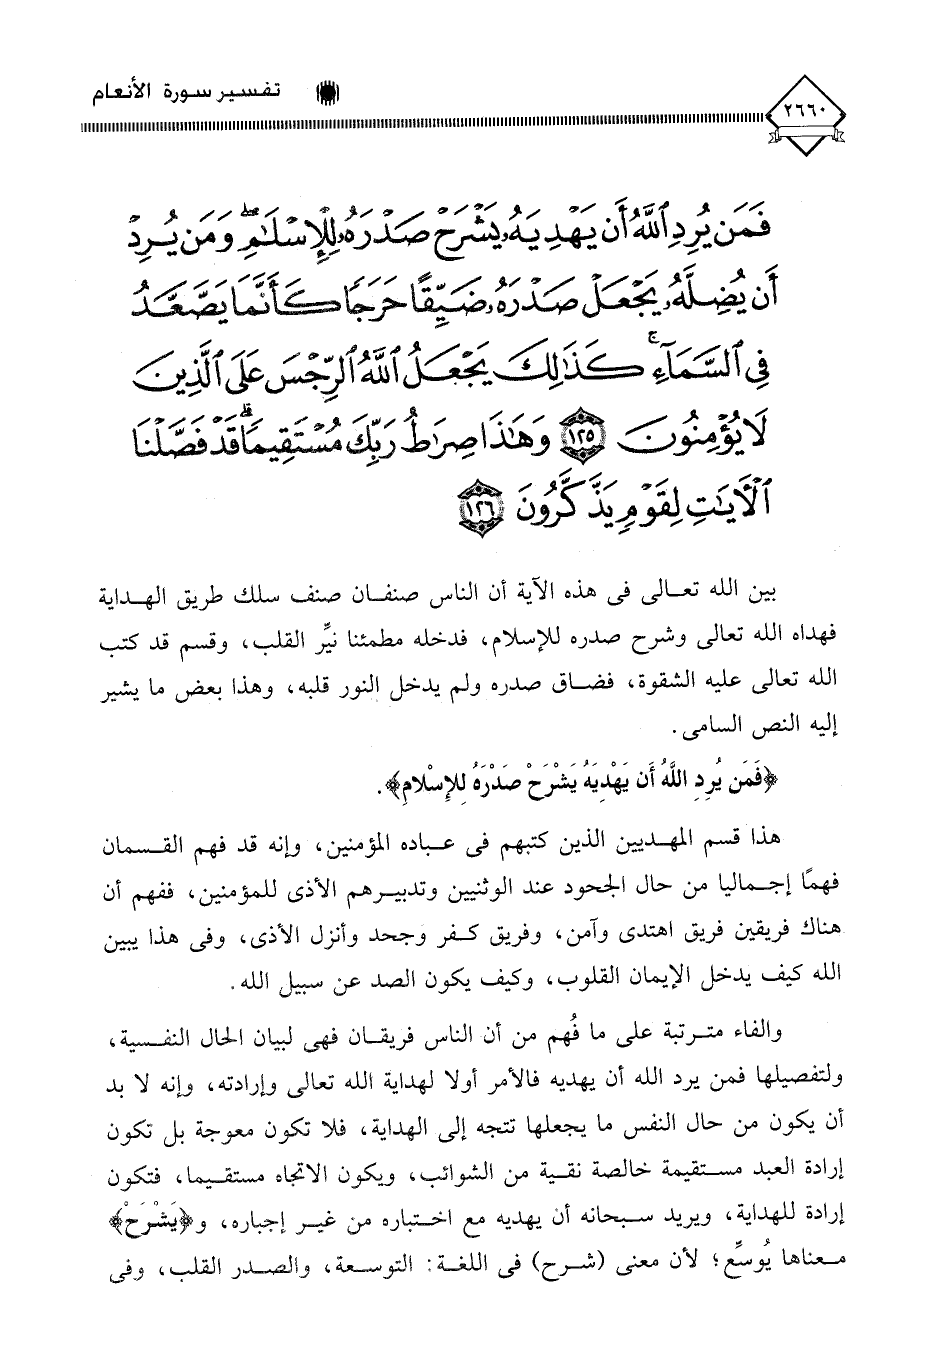 تفسير سورة الأنعام
٢٦٦٠
فَمَن يُرِدِ ٱللَّهُ أَن يَهْدِيَهُۥ يَشْرَحْ صَدْرَهُۥ لِلْإِسْلَٰمِ ۖ وَمَن يُرِدْ
أَن يُضِلَّهُۥ يَجْعَلْ صَدْرَهُۥ ضَيِّقًا حَرَجًا كَأَنَّمَا يَصَّعَّدُ
فِى ٱلسَّمَآءِ ۚ كَذَٰلِكَ يَجْعَلُ ٱللَّهُ ٱلرِّجْسَ عَلَى ٱلَّذِينَ
لَا يُؤْمِنُونَ ١٢٥ وَهَٰذَا صِرَٰطُ رَبِّكَ مُسْتَقِيمًا ۗ قَدْ فَصَّلْنَا
ٱلْءَايَٰتِ لِقَوْمٍ يَذَّكَّرُونَ ١٢٦
بين الله تعالى فى هذه الآية أن الناس صنفان صنف سلك طريق الهداية
فهداه الله تعالى وشرح صدره للإسلام، فدخله مطمئنا نيِّر القلب، وقسم قد كتب
الله تعالى عليه الشقوة، فضاق صدره ولم يدخل النور قلبه، وهذا بعض ما يشير
إليه النص السامى.
﴿فَمَن يُرِدِ اللَّهُ أَن يَهْدِيَهُ يَشْرَحْ صَدْرَهُ لِلإِسْلامِ﴾.
هذا قسم المهديين الذين كتبهم فى عباده المؤمنين، وإنه قد فهم القسمان
فهمًا إجماليا من حال الجحود عند الوثنيين وتدبيرهم الأذى للمؤمنين، ففهم أن
هناك فريقين فريق اهتدى وآمن، وفريق كفر وجحد وأنزل الأذى، وفى هذا يبين
الله كيف يدخل الإيمان القلوب، وكيف يكون الصد عن سبيل الله.
والفاء مترتبة على ما فُهم من أن الناس فريقان فهى لبيان الحال النفسية،
ولتفصيلها فمن يرد الله أن يهديه فالأمر أولا لهداية الله تعالى وإرادته، وإنه لا بد
أن يكون من حال النفس ما يجعلها تتجه إلى الهداية، فلا تكون معوجة بل تكون
إرادة العبد مستقيمة خالصة نقية من الشوائب، ويكون الاتجاه مستقيما، فتكون
إرادة للهداية، ويريد سبحانه أن يهديه مع اختباره من غير إجباره، و﴿يَشْرَحْ﴾
معناها يُوسِّع؛ لأن معنى (شرح) فى اللغة: التوسعة، والصدر القلب، وفى